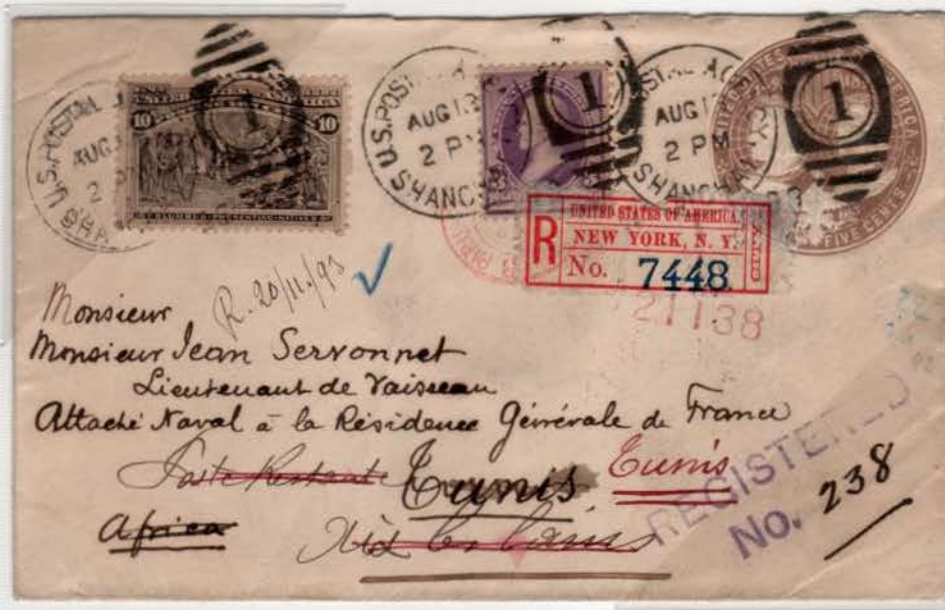 U.S. POSTAL
AUG
2
SHA
10 10
COLUMBUS PRESENTING NATIVES
1
U.S. POSTAL A
AUG 13
2 PM
SHANGHAI
1
POSTAL AGCY.
AUG 13
2 PM
SHANGHAI
1
UNITED STATES OF AMERICA
FIVE CENTS
R
UNITED STATES OF AMERICA.
NEW YORK, N. Y.
No. 7448
21138
R. 20/11./93
Monsieur
Monsieur Jean Servonnet
Lieutenant de Vaisseau
Attaché Naval à la Résidence Générale de France
Poste Restante
Tunis
Tunis
Africa
Aix les bains
REGISTERED
No. 238